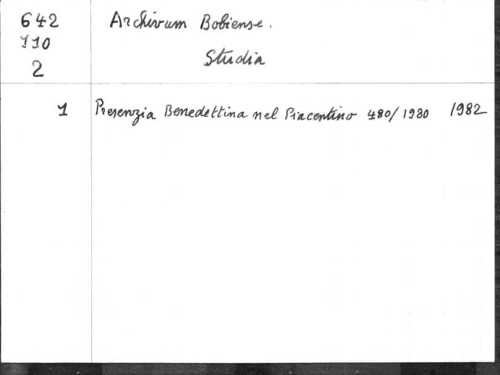 642 Archivum Bobiense.
110
2 Studia
1 Presenzia Benedettina nel Piacentino 480/1980 1982